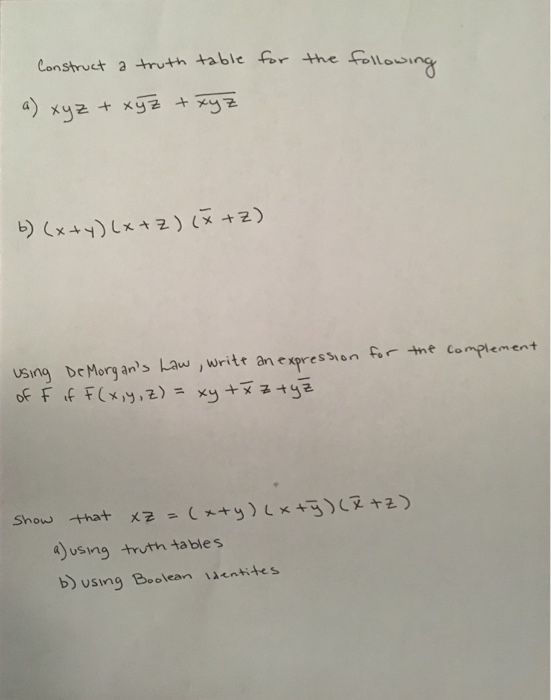 Construct a truth table for the following
a) xyz + x\overline{yz} + \overline{xyz}
b) (x+y)(x+z)(x̄+z)
Using DeMorgan's Law, write an expression for the complement
of F if F(x,y,z) = xy + x̄z + yz̄
Show that xz = (x+y)(x+ȳ)(x̄+z)
a) using truth tables
b) using Boolean identites